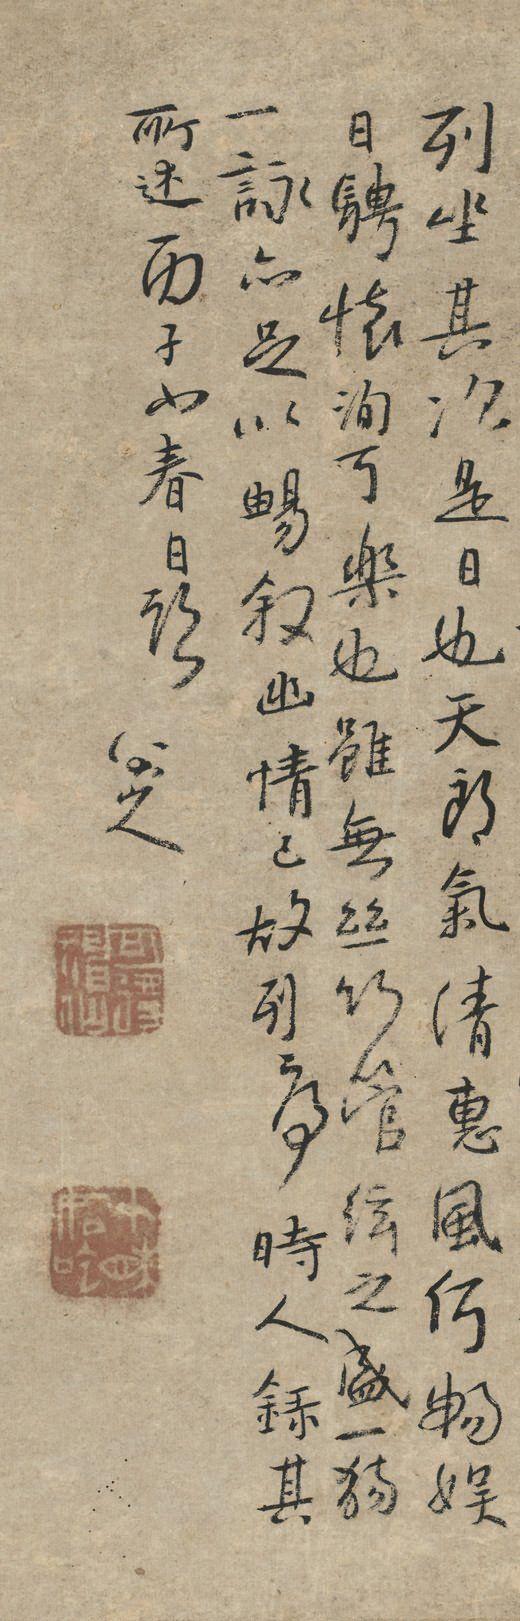 列坐其次是日也天朗氣清惠風和暢娱
日騁懷洵可樂也雖無絲竹管絃之盛一觴
一詠亦足以暢叙幽情已故列序時人錄其
所述丙子小春日題
八大山人
可得神仙